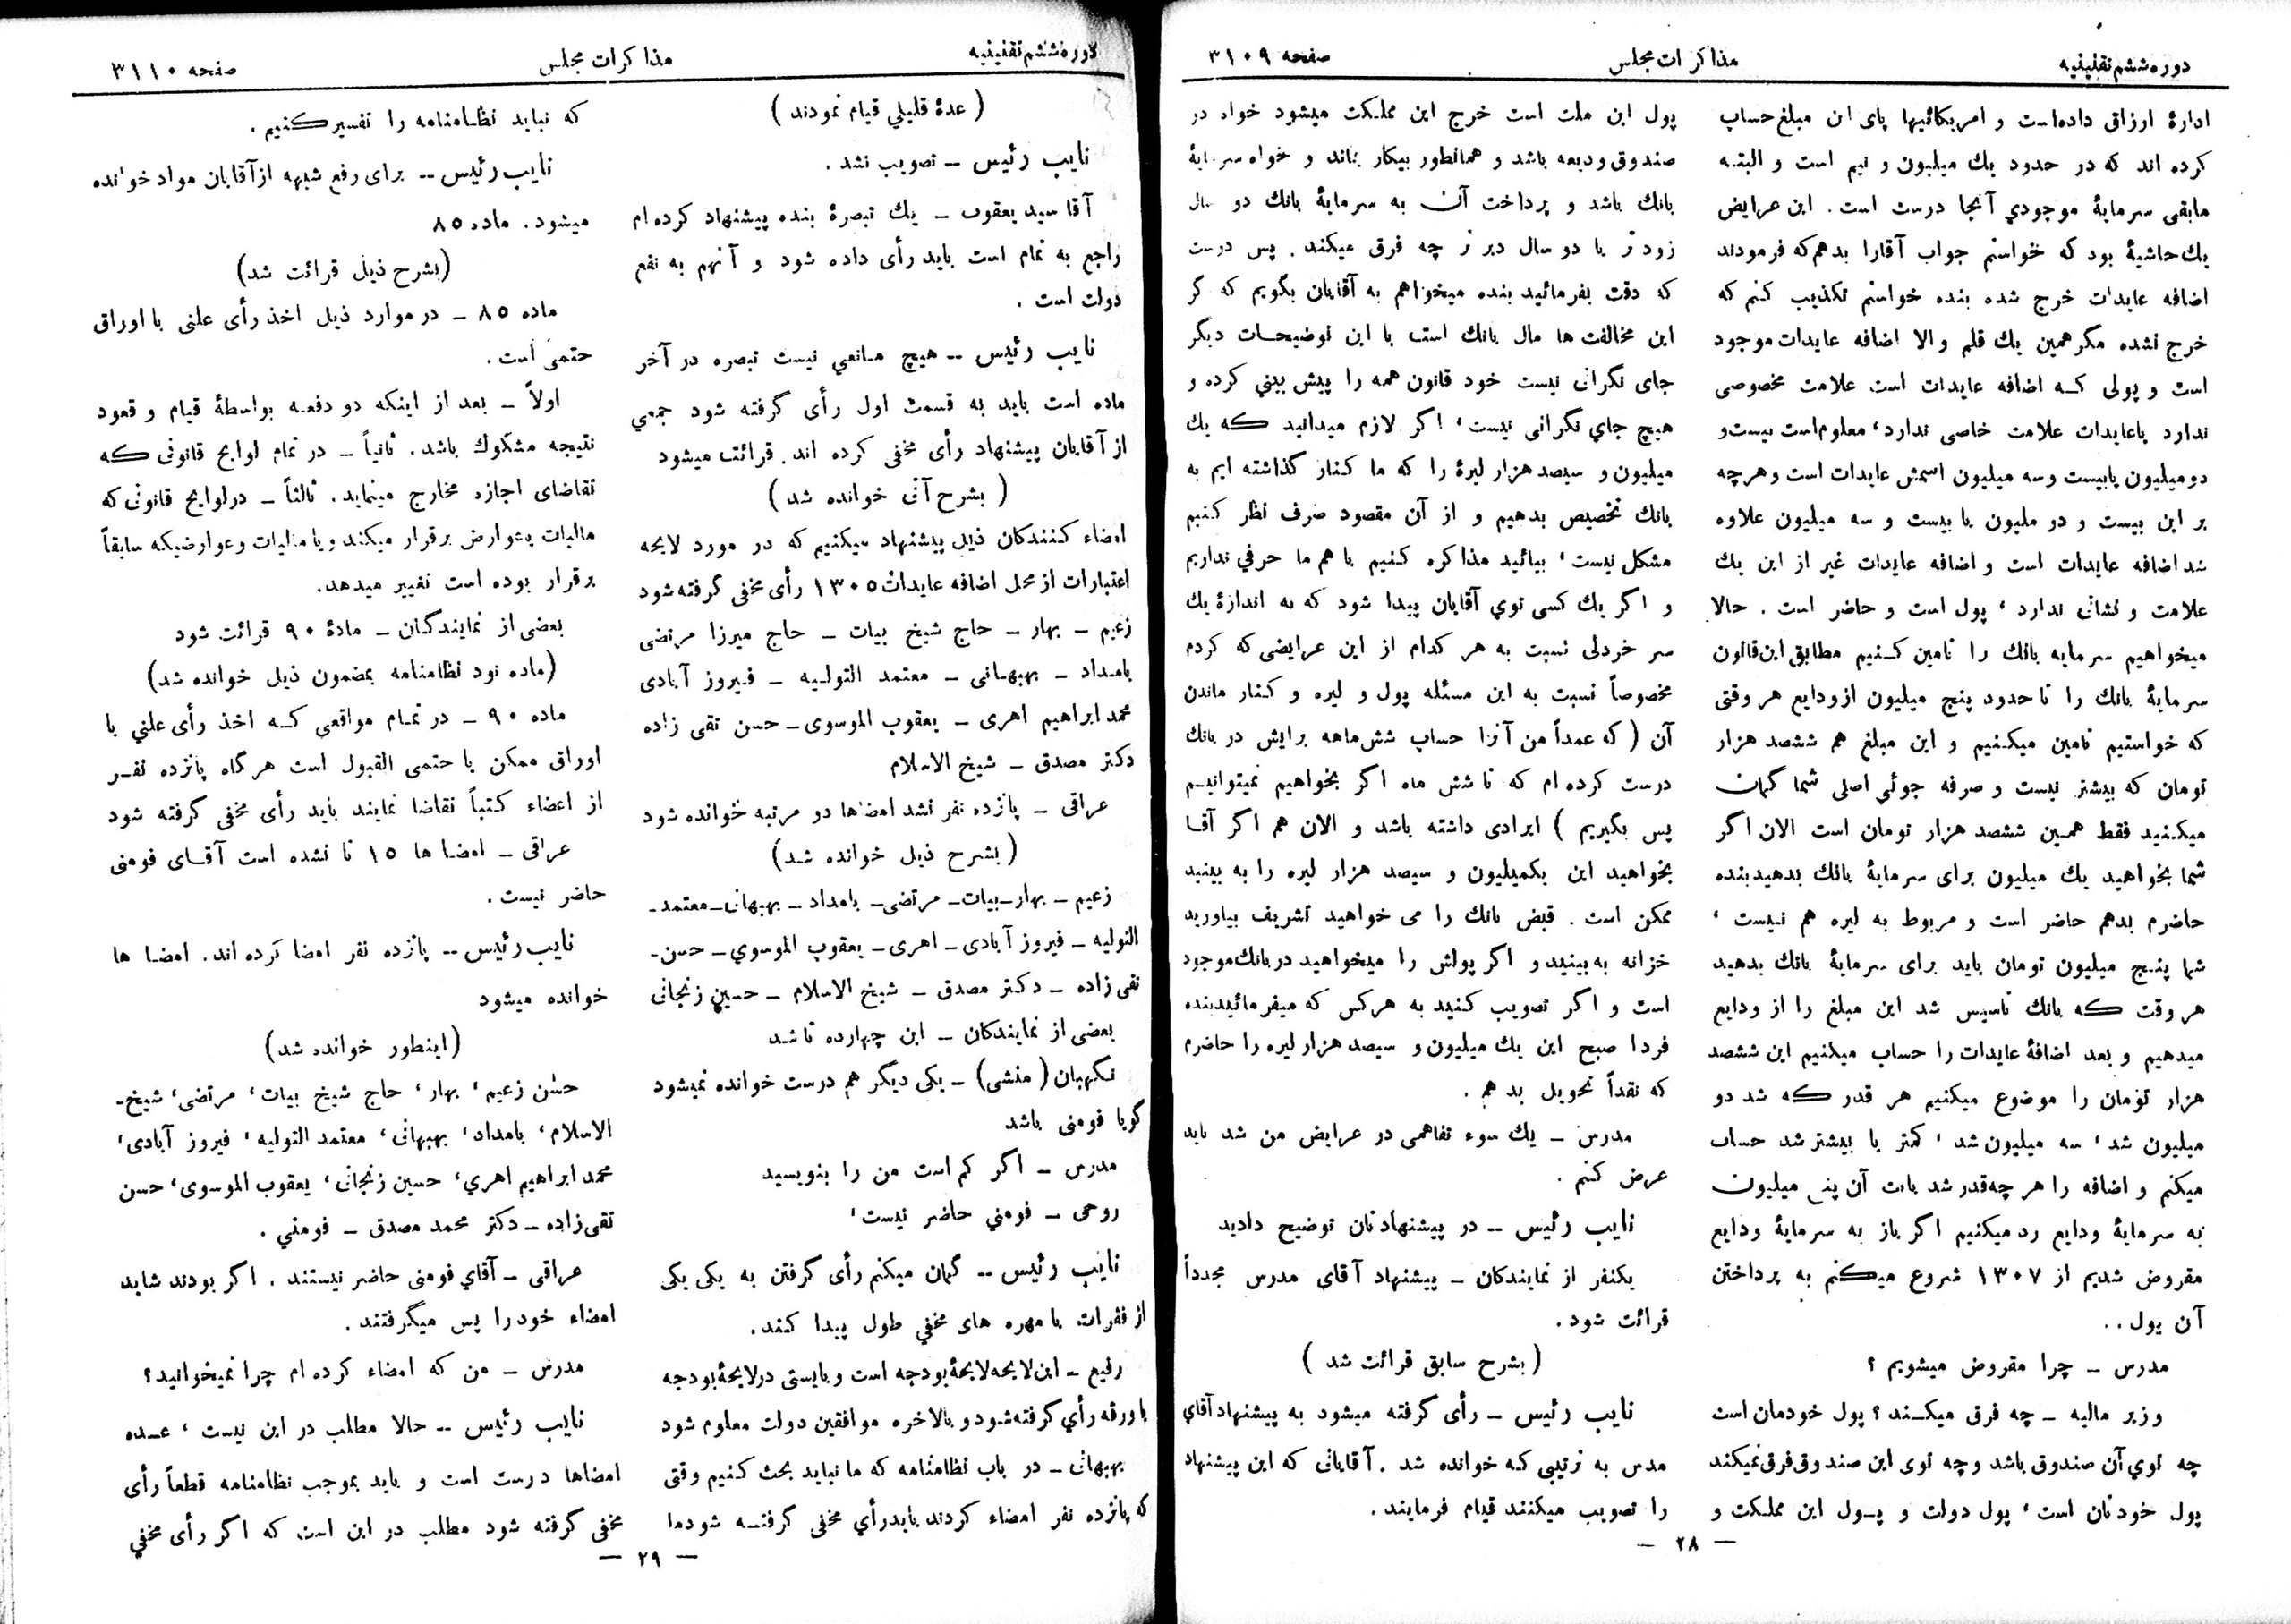 دوره ششم تقنینیه
مذاکرات مجلس
صفحه ۳۱۰۹
ادارهٔ ارزاق داده‌است و امریکائیها پای ان مبلغ حساب
کرده اند که در حدود یك میلیون و نیم است و البته
مابقی سرمایهٔ موجودي آنجا درست است . این عرایض
یك حاشیهٔ بود که خواستم جواب آقارا بدهم که فرمودند
اضافه عایدات خرج شده بنده خواستم تکذیب کنم که
خرج نشده مگر همین یك قلم والا اضافه عایدات موجود
است و پولی کـه اضافه عایدات است علامت مخصوصی
ندارد یاعایدات علامت خاصی ندارد، معلوم‌است بیست‌و
دومیلیون یابیست وسه میلیون اسمش عایدات است و هرچه
بر این بیست و دو ملیون یا بیست و سه میلیون علاوه
شد اضافه عایدات است و اضافه عایدات غیر از این یك
علامت و نشانی ندارد ، پول است و حاضر است . حالا
میخواهیم سرمایه بانك را تامین کـنیم مطابق این‌قانون
سرمایهٔ بانك را تا حدود پنج میلیون ازودایع هر وقتی
که خواستیم تامین میکـنیم و این مبلغ هم ششصد هزار
تومان که بیشتر نیست و صرفه جوئی اصلی شما گمان
میکـنید فقط همـین ششصد هزار تومان است الان اگر
شما بخواهید یك میلیون برای سرمایهٔ بانك بدهید بنده
حاضرم بدهم حاضر است و مربوط به لیره هم نـیست ،
شما پنـج میلیون تومان باید برای سرمایهٔ بانك بدهید
هر وقت که بانك تاسیس شد این مبلغ را از ودایع
میدهیم و بعد اضافهٔ عایدات را حساب میکنیم این ششصد
هزار تومان را موضوع میکنیم هر قدر که شد دو
میلیون شد ، سه میلیون شد ، کمتر یا بیشتر شد حساب
میکنم و اضافه را هر چه‌قدر شد بابت آن پنج میلیون
به سرمایهٔ ودایع رد میکنیم اگر باز به سرمایهٔ ودایع
مقروض شدیم از ۱۳۰۷ شروع میکنم به پرداختن
آن پول . .
مدرس ــ چرا مقروض میشویم ؟
وزیر مالیه ــ چه فرق میکـند ؟ پول خودمان است
چه توي آن صندوق باشد وچه توی این صندوق فرق نمیکند
پول خودتان است ، پول دولت و پـول این مملـکت و
پول این ملت است خرج این مملکت میشود خواه در
صندوق ودیعه باشد و همانطور بیکار بماند و خواه سرمایهٔ
بانك باشد و پرداخت آن به سرمایهٔ بانك دو سال
زود تر یا دو سال دیر تر چه فرق میکند . پس درست
که دقت بفرمائید بنده میخواهم به آقایان بگویم که گر
این مخالفت ها مال بانك است با این توضیحـات دیگر
جای نگرانی نیست خود قانون همه را پیش بیني کرده و
هیچ جاي نگرانی نیست ، اگر لازم میدانید که یك
میلیون و سیصد هزار لیرهٔ را که ما کنار گذاشته ایم به
بانك تخصیص بدهیم و از آن مقصود صرف نظر کنیم
مشکل نیست ، بیائید مذاکره کـنیم باهم ما حرفي نداریم
و اگر یك کسی توي آقایان پیدا شود که به اندازهٔ یك
سر خردلی نسبت به هر کدام از این عرایضی که کردم
مخصوصاً نسبت به این مسئله پول و لیره و کـنار ماندن
آن ( که عمداً من آنرا حساب شش‌ماهه برایش در بانك
درست کرده ام که تا شش ماه اگر بخواهیم نمیتوانیـم
پس بگیریم ) ایرادی داشته باشد و الان هم اگر آقـا
بخواهید این یکمیلیون و سیصد هزار لیره را به بینید
ممکن است . قبض بانك را می خواهید تشریف بیاورید
خزانه به بینید و اگر پولش را میخواهید در بانك‌موجود
است و اگر تصویب کنید به هرکس که میفرمائید بنده
فردا صبح این یك میلیون و سیصد هزار لیره را حاضرم
که نقداً تحویل بد هم .
مدرس ــ یك سوء تفاهمی در عرایض من شد باید
عرض کنم .
نایب رئیس ــ در پیشنهادتان توضیح دادید
یکنفر از نمایندکان ــ پیشنهاد آقای مدرس مجدداً
قرائت شود .
( بشرح سابق قرائت شد )
نایب رئیس ــ رأی گرفته میشود به پیشنهاد آقاي
مدرس به ترتیبی که خوانده شد . آقایانی که این پیشنهاد
را تصویب میکنند قیام فرمایند .
— ۲۸ —
دوره ششم تقنینیه
مذاکرات مجلس
صفحه ۳۱۱۰
( عدهٔ قلیلي قیام نمودند )
نایب رئیس ــ تصویب نشد .
آقا سید یعقوب ــ یك تبصرهٔ بنده پیشنهاد کرده ام
راجع به تمام است باید رأی داده شود و آنهم به نفع
دولت است .
نایب رئیس ــ هیچ مـانعي نیست تبصره در آخر
ماده است باید به قسمت اول رأی گرفته شود جمعي
از آقایان پیشنهاد رأی مخفی کرده اند. قرائت میشود
( بشرح آتی خوانده شد )
امضاء کـنندکان ذیل پیشنهاد میکنیم که در مورد لایحه
اعتبارات از محل اضافه عایدات ۱۳۰۵ رأی مخفی گرفته شود
زعیم ــ بهار ــ حاج شیخ بیات ــ حاج میرزا مرتضی
بامداد ــ بهبهـانی ــ معتمد التولـیه ــ فـیروز آبادی
محمد ابراهیم اهری ــ یعقوب الموسوی ــ حسن تقی زاده
دکتر مصدق ــ شیخ الاسلام
عراقی ــ پانزده نفر نشد امضاها دو مرتبه خوانده شود
( بشرح ذیل خوانده شد )
زعیم ــ بهار ــ بیات ــ مرتضی ــ بامداد ــ بهبهانی ــ معتمد-
التولیه ــ فیروز آبادی ــ اهری ــ یعقوب الموسوي ــ حسن-
تقی زاده ــ دکتر مصدق ــ شیخ الاسلام ــ حسین زنجانی
بعضی از نمایندکان ــ این چهارده تا شد
نگهبان ( منشی ) ــ یکی دیگر هم درست خوانده نمیشود
گویا فومنی باشد
مدرس ــ اگر کم است من را بنویسید
روحی ــ فومني حاضر نیست ،
نایب رئیس ــ گمان میکنم رأی گرفتن به یکی یکی
از فقرات با مهره های مخفي طول پیدا کند .
رفیع ــ این لایحه لایحهٔ بودجه است و بایستی در لایحهٔ بودجه
با ورقه رأي گرفته شود و بالاخره موافقین دولت معلوم شود
بهبهانی ــ در باب نظامنامه که ما نباید بحث کنیم وقتی
که پانزده نفر امضاء کردند باید رأي مخفی گرفتـه شود ما
که نباید نظـامنامه را تفسیر کنیم .
نایب رئیس ــ برای رفع شبهه از آقایان مواد خوانده
میشود . ماده ۸۵
(بشرح ذیل قرائت شد)
ماده ۸۵ ــ در موارد ذیل اخذ رأی علنی با اوراق
حتمی است .
اولاً ــ بعد از اینکه دو دفعـه بواسطهٔ قیام و قعود
نتیجه مشکوك باشد . ثانیاً ــ در تمام لوایح قانونی که
تقاضای اجازه مخارج مینماید . ثالثاً ــ در لوایح قانونی که
مالیات یاعوارض برقرار میکند و یا مالیات وعوارضیکه سابقاً
برقرار بوده است تغییر میدهد.
بعضی از نمایندگـان ــ مادهٔ ۹۰ قرائت شود
(ماده نود نظامنامه بمضمون ذیل خوانده شد)
ماده ۹۰ ــ در تمـام مواقعی کـه اخذ رأی علني با
اوراق ممکن یا حتمی القبول است هرگاه پانزده نفـر
از اعضاء کتباً تقاضا نمایند باید رأی مخفی گرفته شود
عراقی ــ امضـا ها ۱۵ تا نشده است آقـای فومنی
حاضر نیست .
نایب رئیس ــ پانزده نفر امضا کرده اند . امضـا ها
خوانده میشود
(اینطور خوانده شد)
حسن زعیم ، بهار ، حاج شیخ بیات ، مرتضی ، شیخ-
الاسلام ، بامداد ، بهبهانی ، معتمد التولیه ، فیروز آبادی ،
محمد ابراهیم اهري ، حسین زنجانی ، یعقوب الموسوی ، حسن
تقی‌زاده ــ دکتر محمد مصدق ــ فومني .
عراقی ــ آقاي فومنی حاضر نیستند . اگر بودند شاید
امضاء خود را پس میگرفتند .
مدرس ــ من که امضاء کرده ام چرا نمیخوانید ؟
نایب رئیس ــ حالا مطلب در این نیست ، عـده
امضاها درست است و باید بموجب نظامنامه قطعاً رأی
مخفی گرفته شود مطلب در این است که اگر رأی مخفي
— ۲۹ —